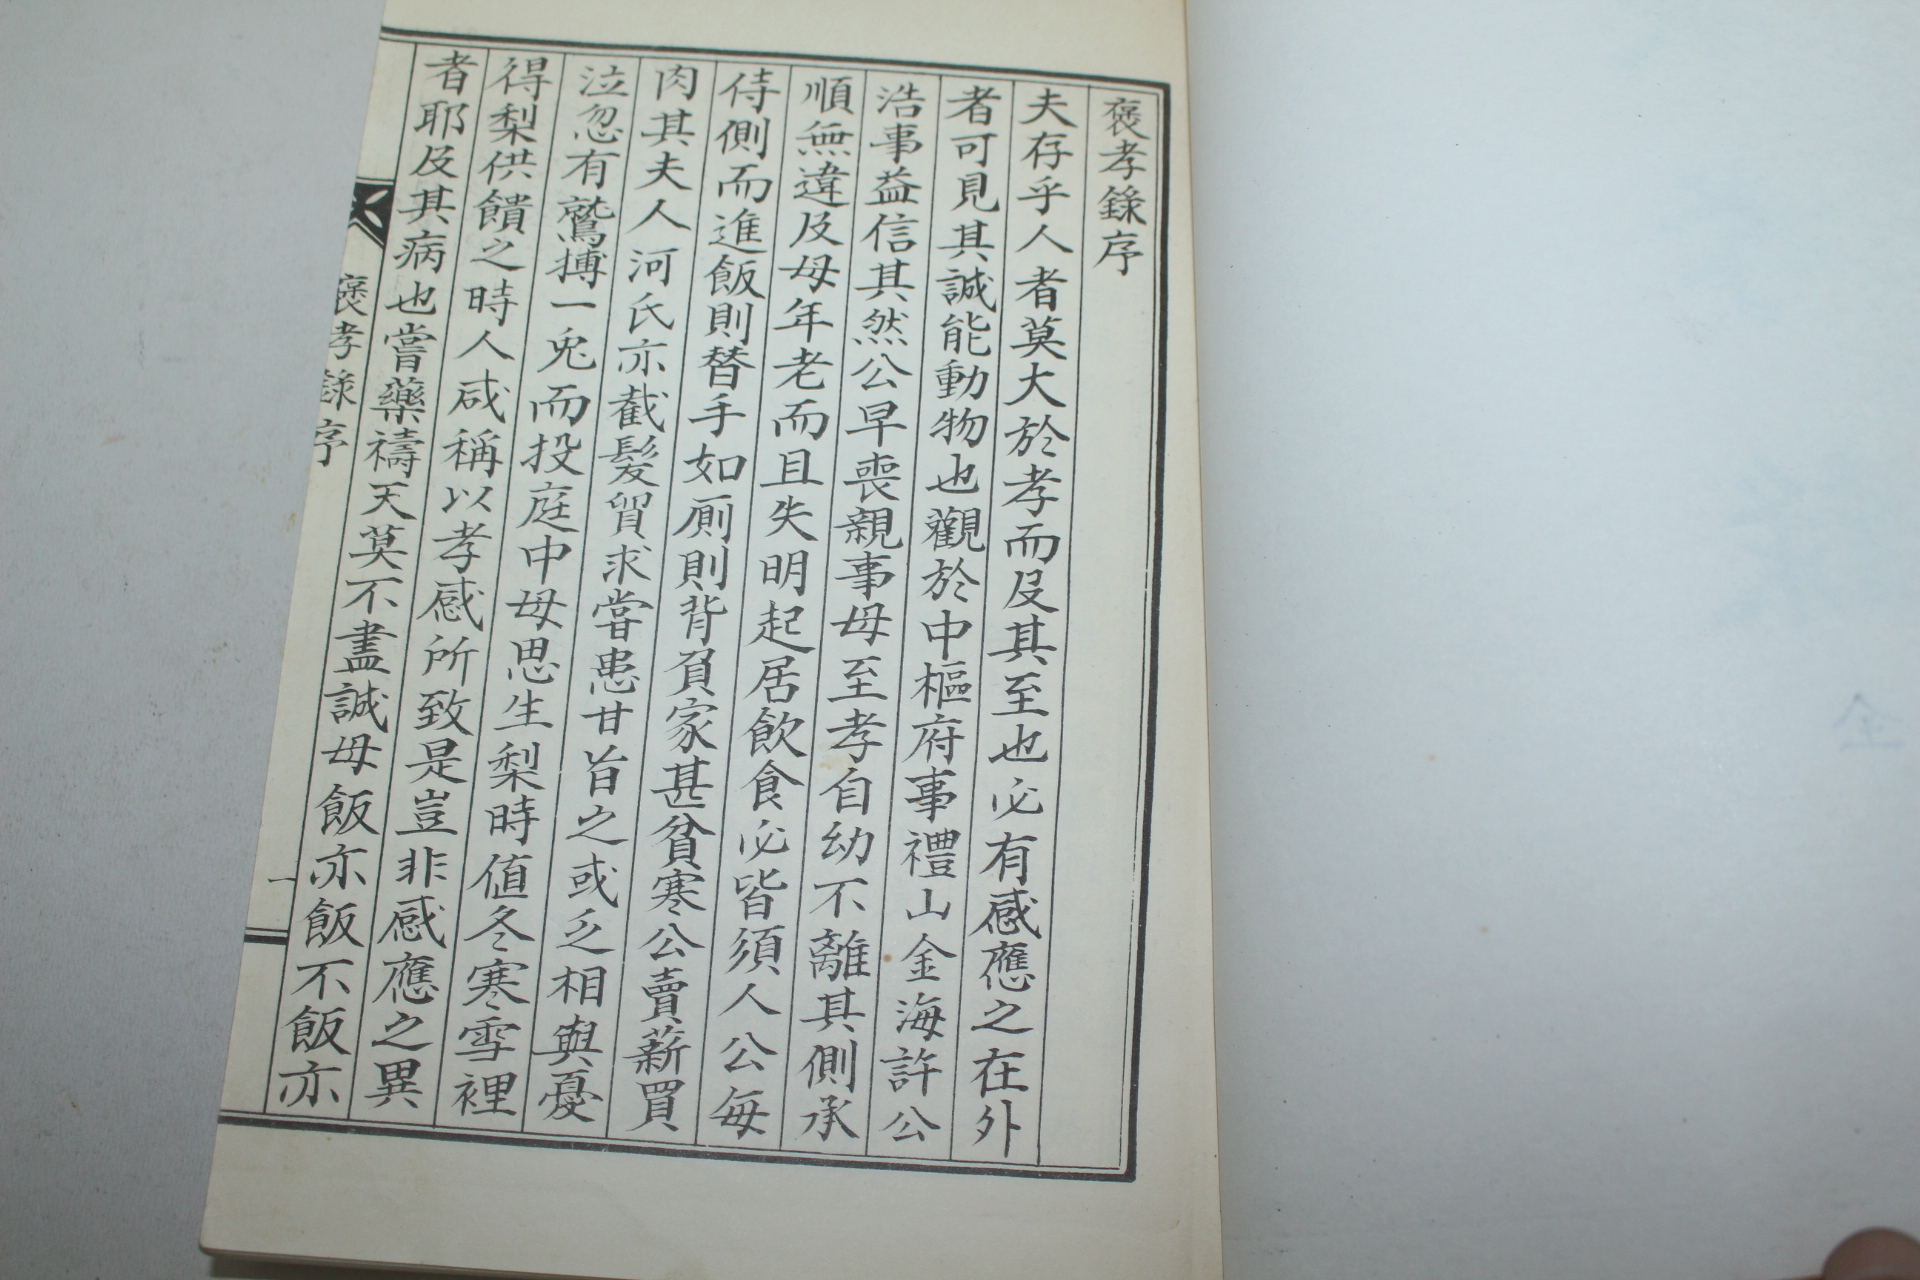 褒孝錄序
夫存乎人者莫大於孝而及其至也必有感應之在外
者可見其誠能動物也觀於中樞府事禮山金海許公
浩事益信其然公早喪親事母至孝自幼不離其側承
順無違及母年老而且失明起居飮食必皆須人公每
侍側而進飯則替手如厠則背負家甚貧寒公賣薪買
肉其夫人河氏亦截髮貿求嘗患甘旨之或乏相與憂
泣忽有鷲搏一兎而投庭中母思生梨時値冬寒雪裡
得梨供饋之時人咸稱以孝感所致是豈非感應之異
者耶及其病也嘗藥禱天莫不盡誠母飯亦飯不飯亦
褒孝錄序
一